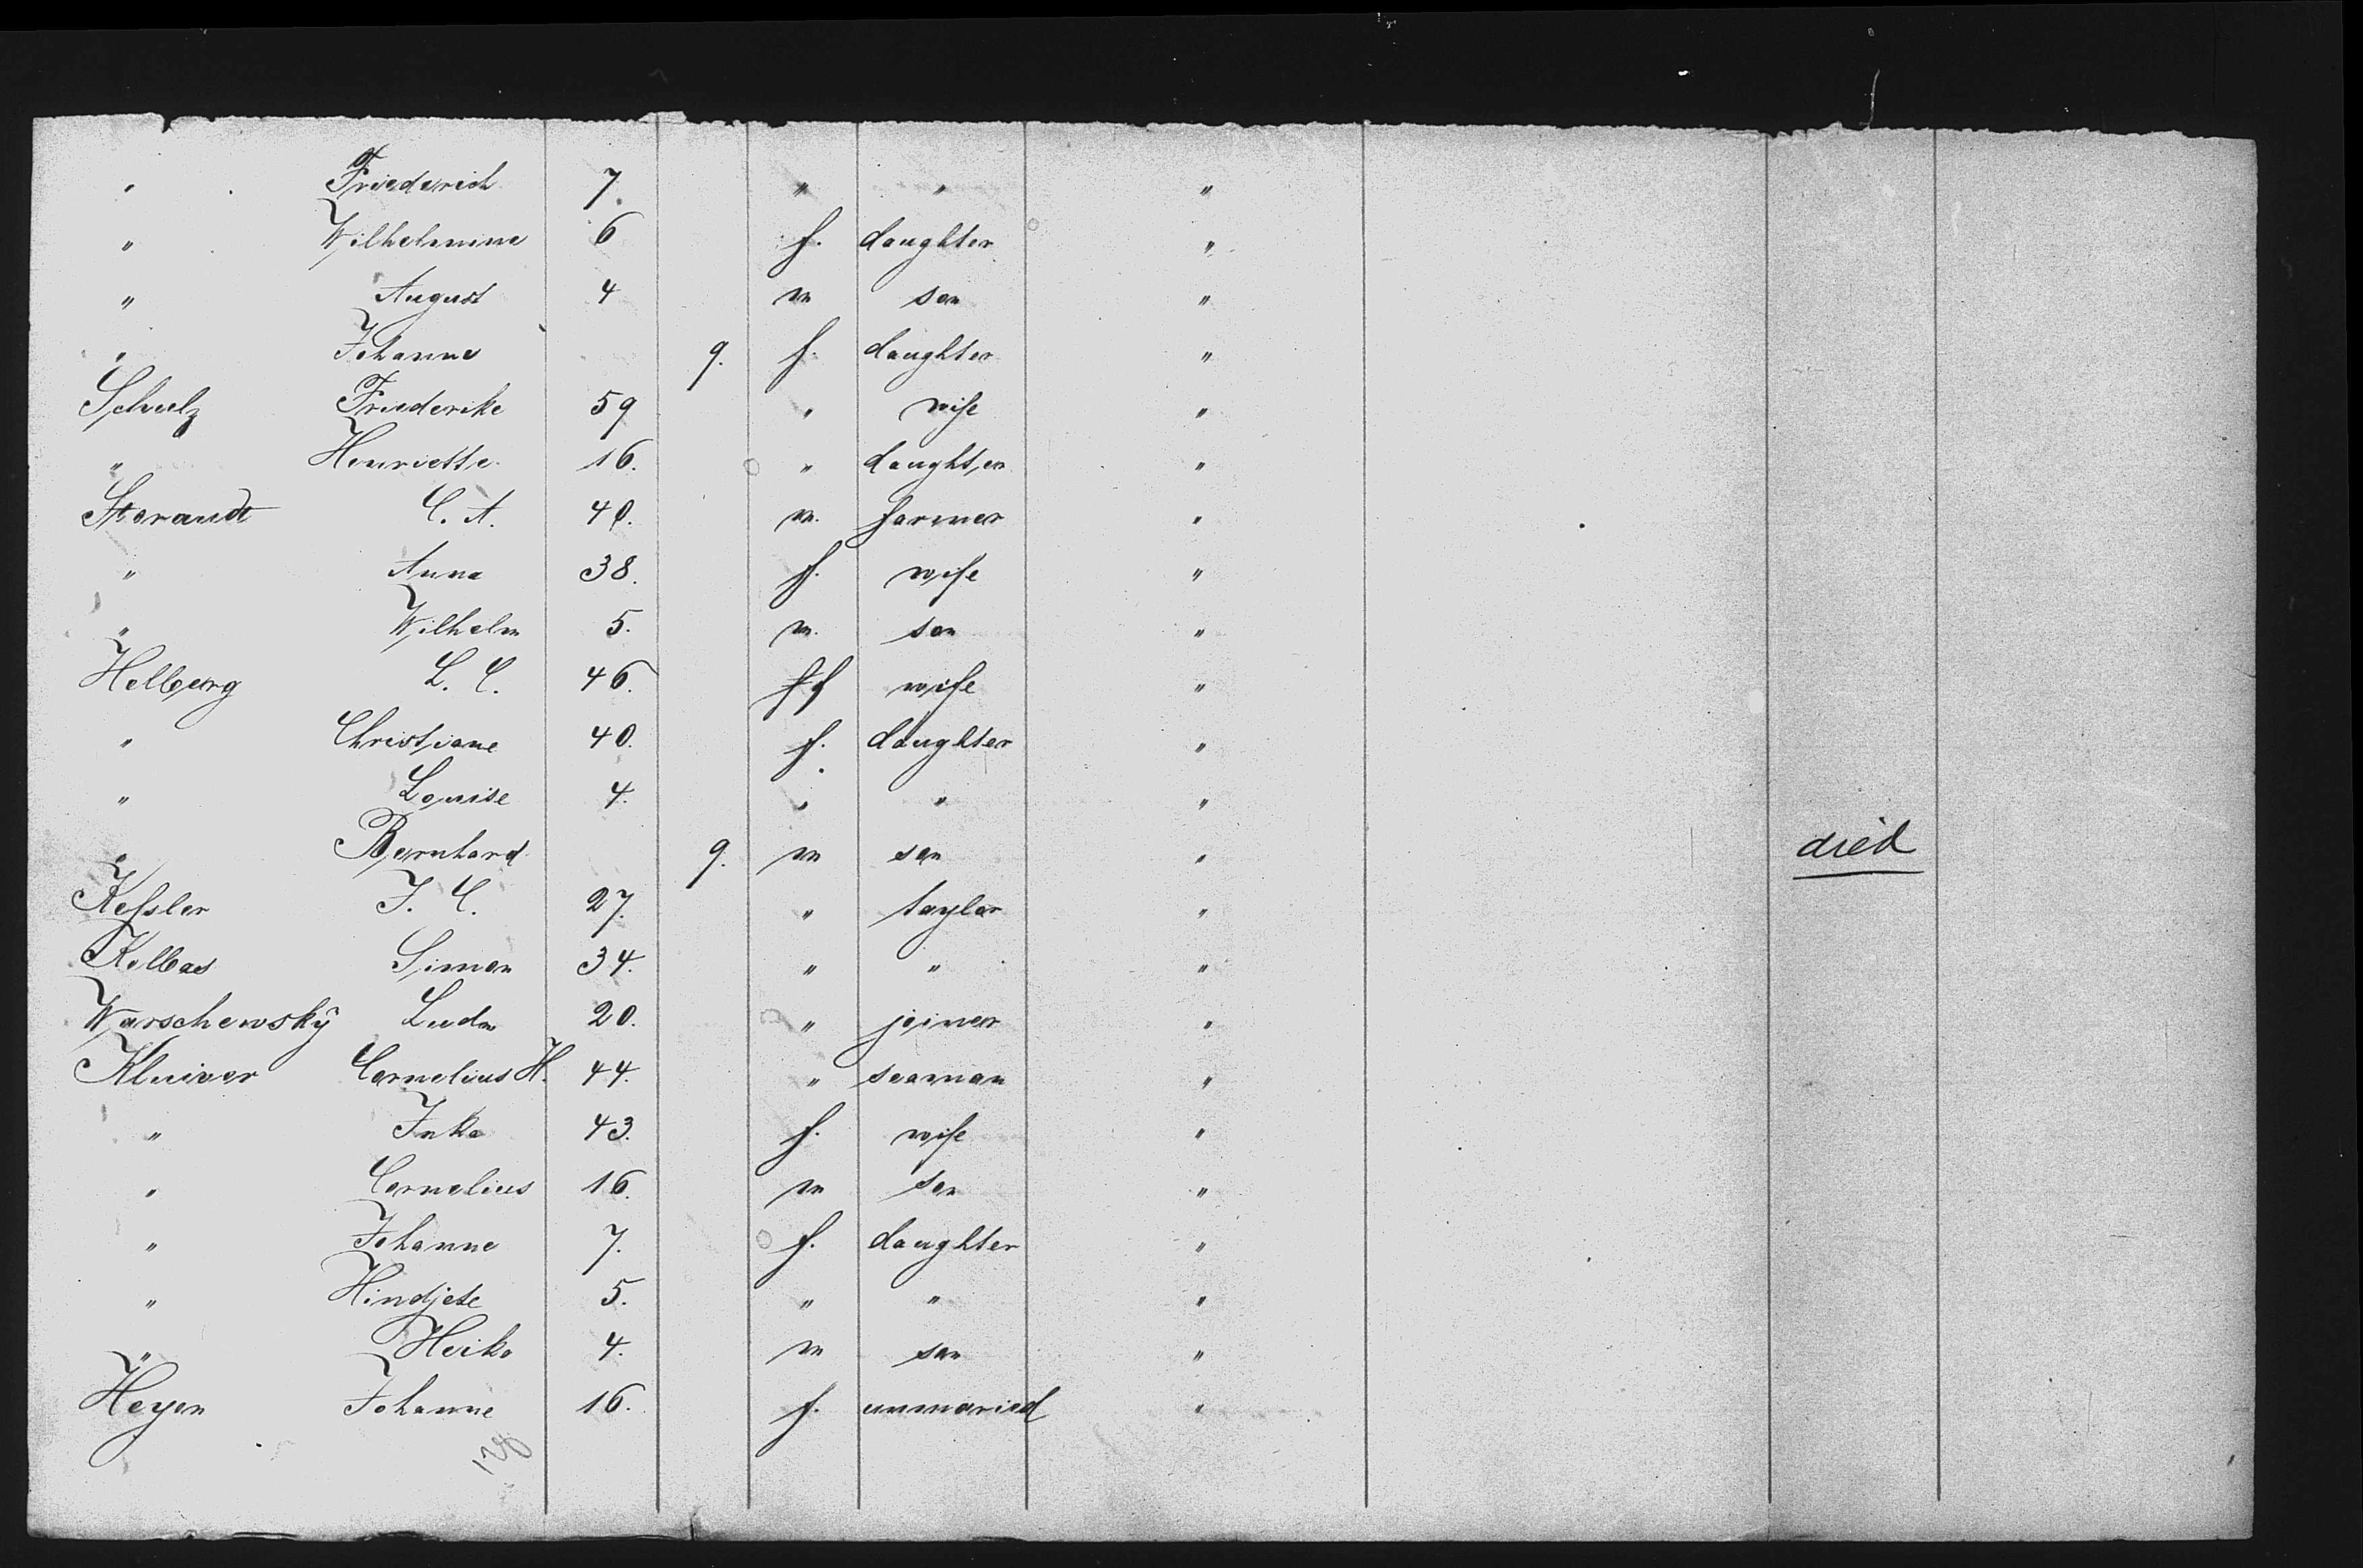 " Friederich 7. " " "
" Wilhelmine 6 f. daughter "
" August 4 m son "
" Johanne 9. f. daughter "
Schulz Friederike 59 " wife "
" Henriette 16. " daughter "
Storandt C. A. 40. m. farmer "
" Anna 38. f. wife "
" Wilhelm 5. m. son "
Hellberg L. C. 46. f wife "
" Christiane 40. f. daughter "
" Louise 4. " " "
" Bernhard 9. m son " died
Keſsler J. C. 27. " taylor "
Kolbas Simon 34. " " "
Warschewsky Ludw 20. " joiner "
Kluiver Cornelius H. 44. " seaman "
" Inka 43. f. wife "
" Cornelius 16. m son "
" Johanne 7. f. daughter "
" Hindjete 5. " " "
" Heiko 4. m son "
Heyen Johanne 16. f. unmaried "